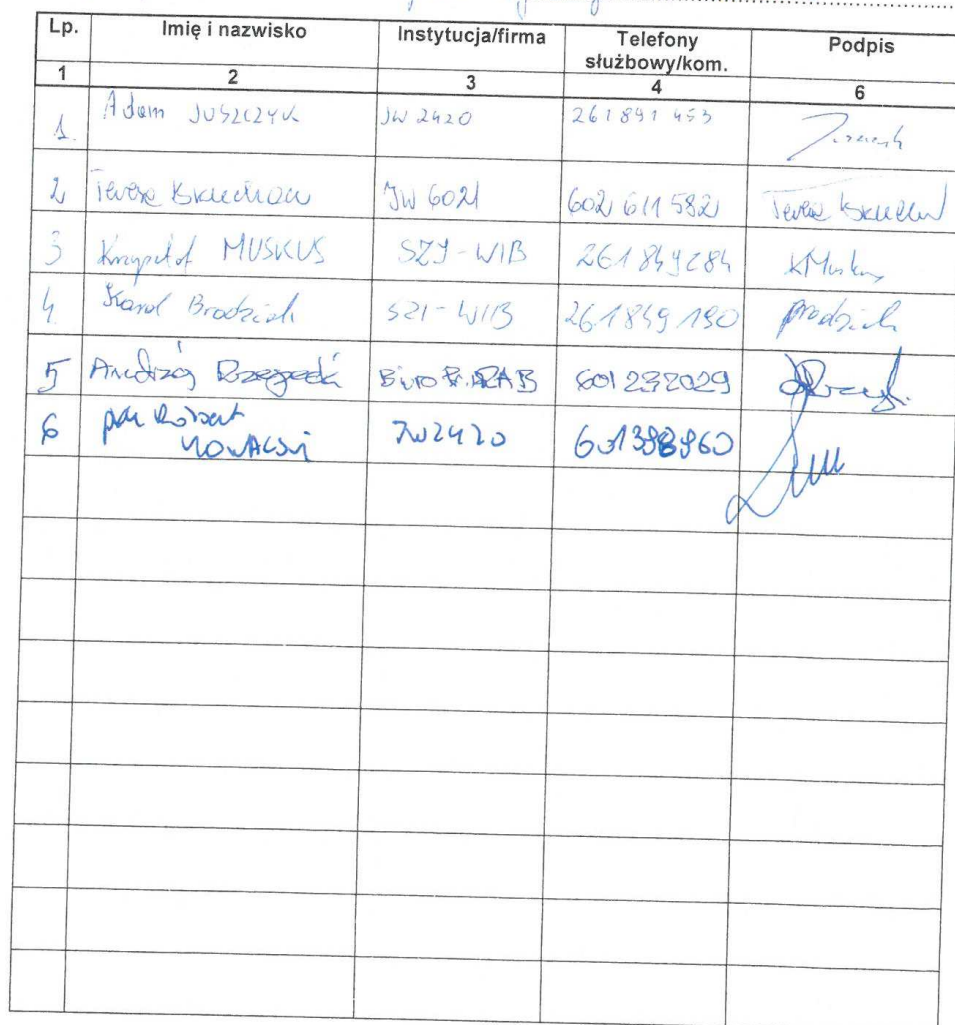 Lp. Imię i nazwisko Instytucja/firma Telefony służbowy/kom. Podpis
1 2 3 4 6
1. Adam JUSZCZYK JW 2420 261 891 453
2 Teresa JW 6021 602 611 582 Teresa
3 Krzysztof MUSKUS SZY-WIB 261849284 KMuskus
4. Karol Brodziak SZI-WIB 261849190 Brodziak
5 Andrzej Rzepecki Biuro 601232029
6 Robert NOWACKI JW2420 601398960